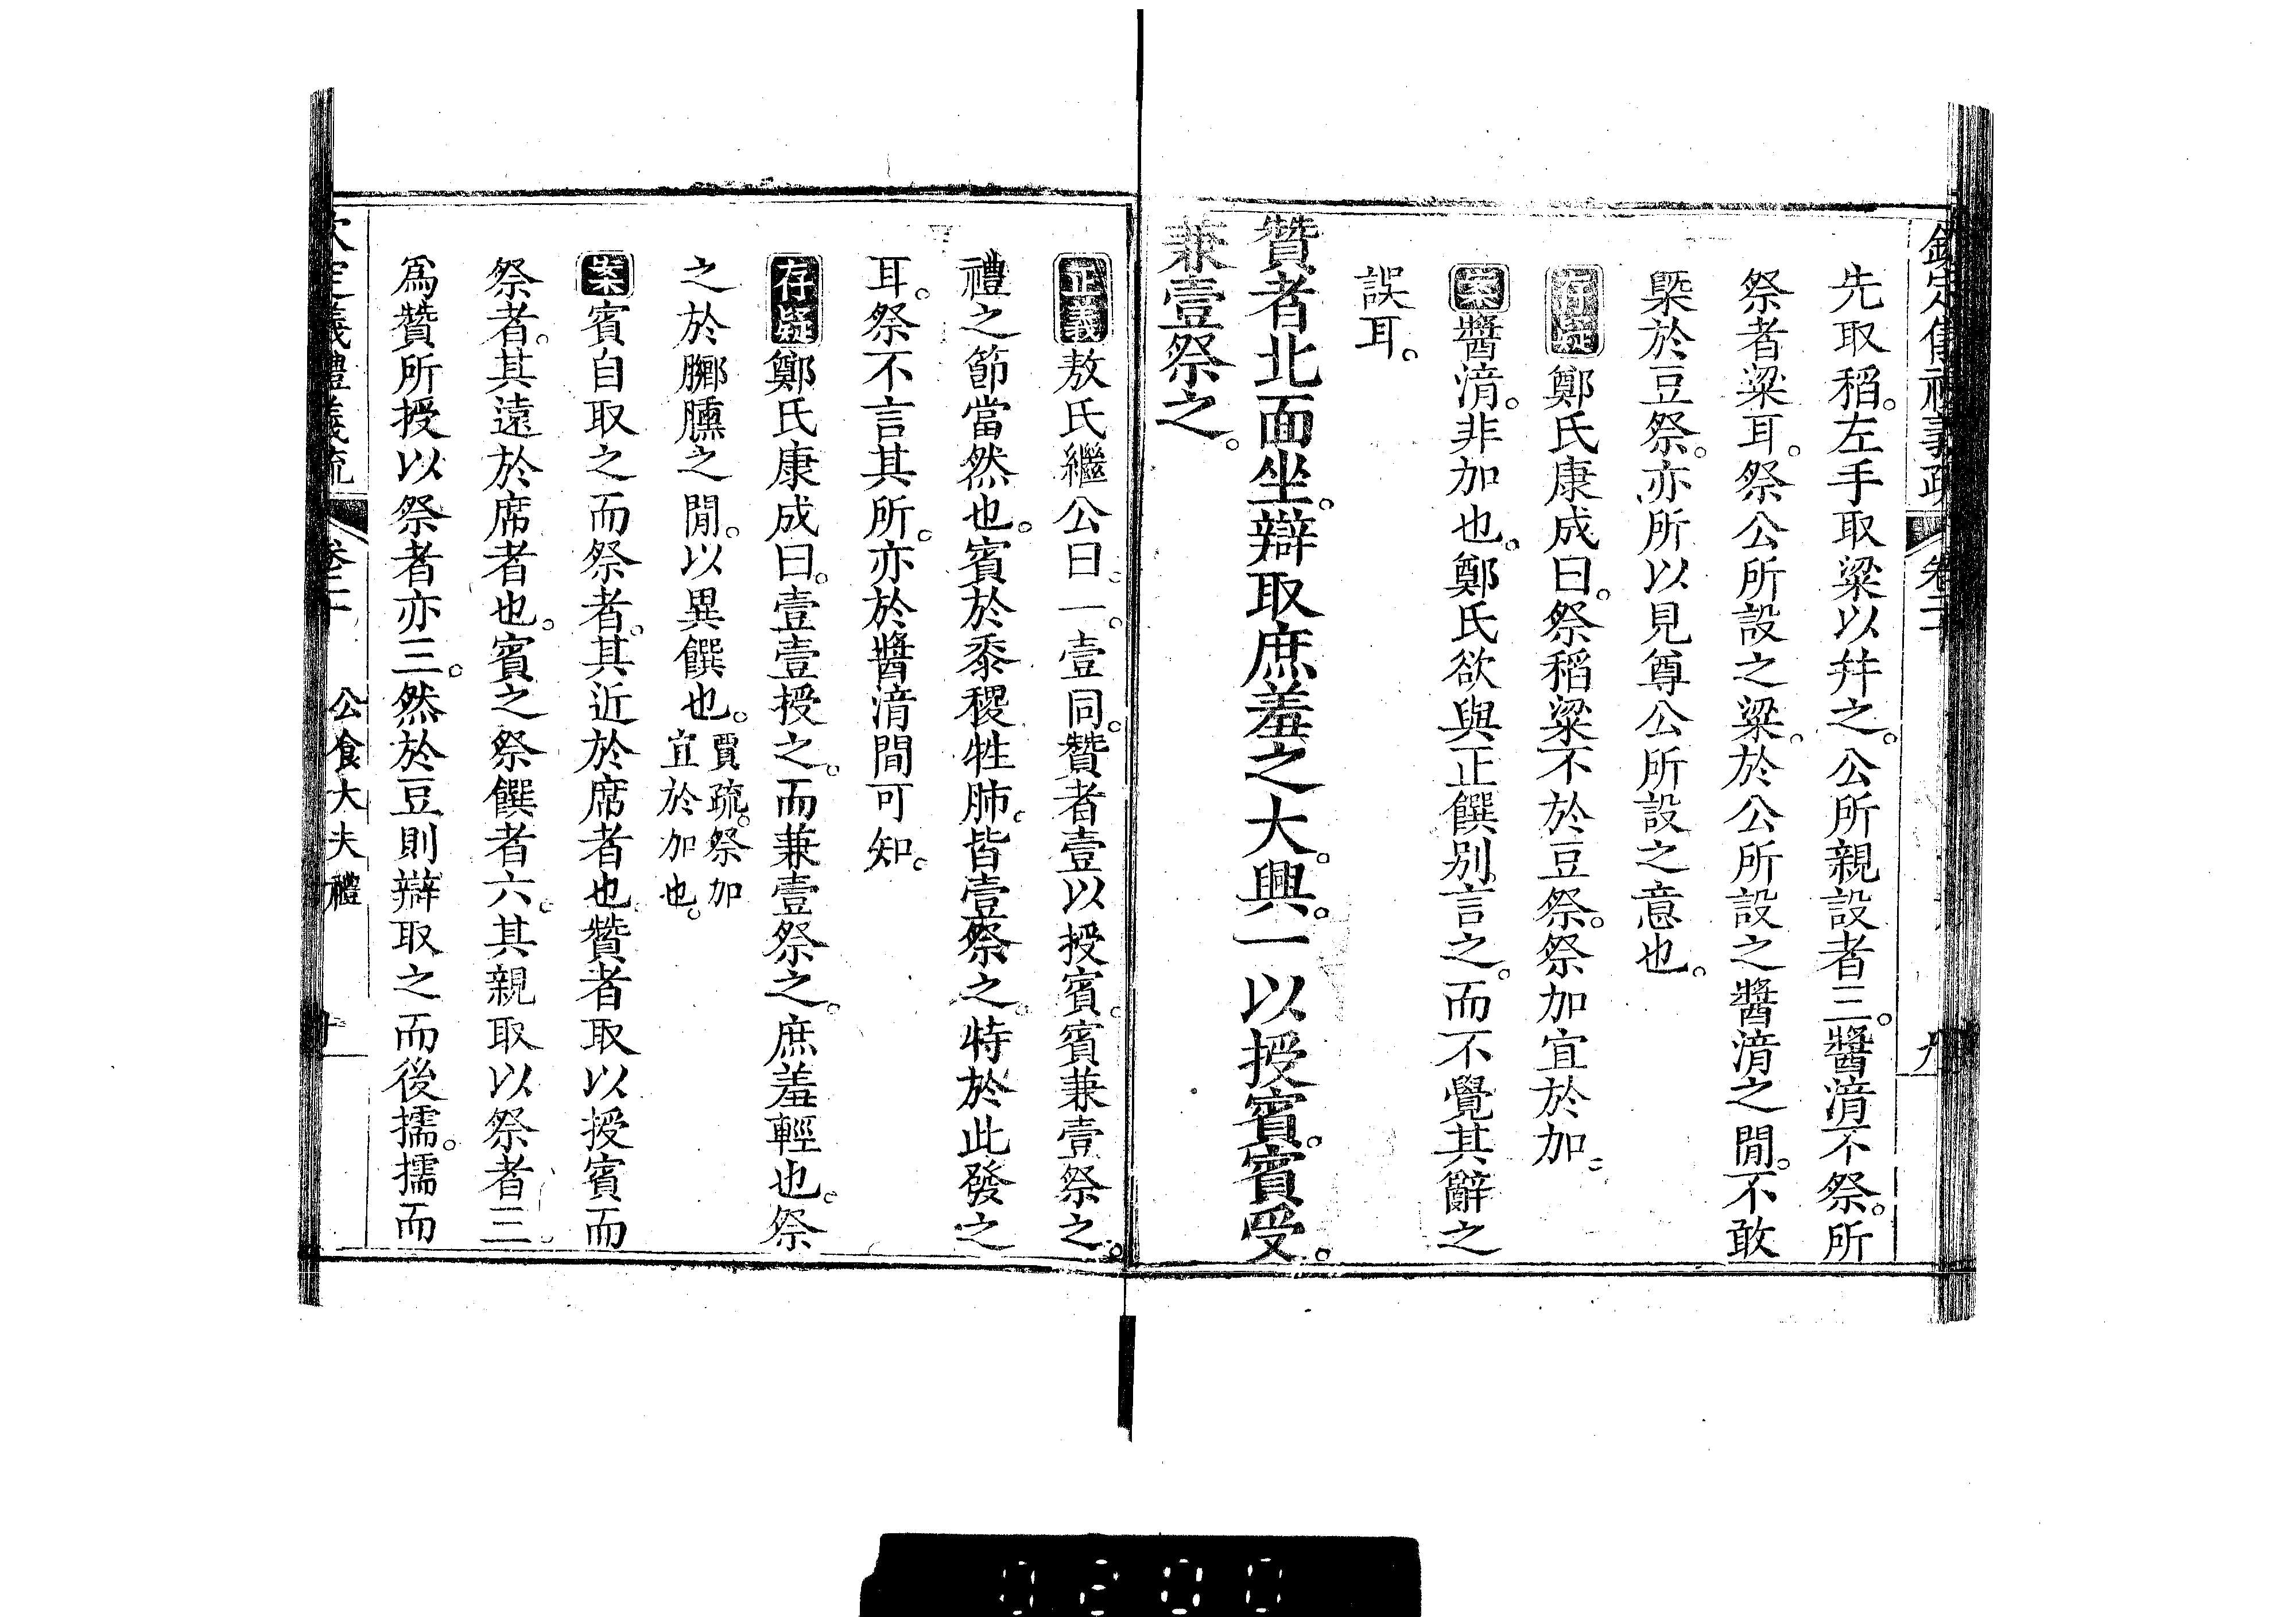 欽定儀禮義疏 卷二十 九
先取稻。左手取粱以幷之。公所親設者三。醬湆不祭。所
祭者粱耳。祭公所設之粱。於公所設之醬湆之閒。不敢
槩於豆祭。亦所以見尊公所設之意也。
存疑鄭氏康成曰。祭稻粱不於豆祭。祭加宜於加。
案醬湆。非加也。鄭氏欲與正饌别言之。而不覺其辭之
誤耳。
贊者北面坐。辯取庶羞之大。興。一以授賓。賓受。
兼壹祭之。
正義敖氏繼公曰。一壹同。贊者壹以授賓。賓兼壹祭之。
禮之節當然也。賓於黍稷牲肺。皆壹祭之。特於此發之
耳。祭不言其所。亦於醬湆間可知。
存疑鄭氏康成曰。壹壹授之。而兼壹祭之。庶羞輕也。祭
之於膷臐之閒。以異饌也。賈疏。祭加宜於加也。
案賓自取之而祭者。其近於席者也。贊者取以授賓而
祭者。其遠於席者也。賓之祭饌者六。其親取以祭者三。
爲贊所授以祭者亦三。然於豆則辯取之而後擩。擩而
欽定義禮義疏 卷二十 公食大夫禮 十
0200